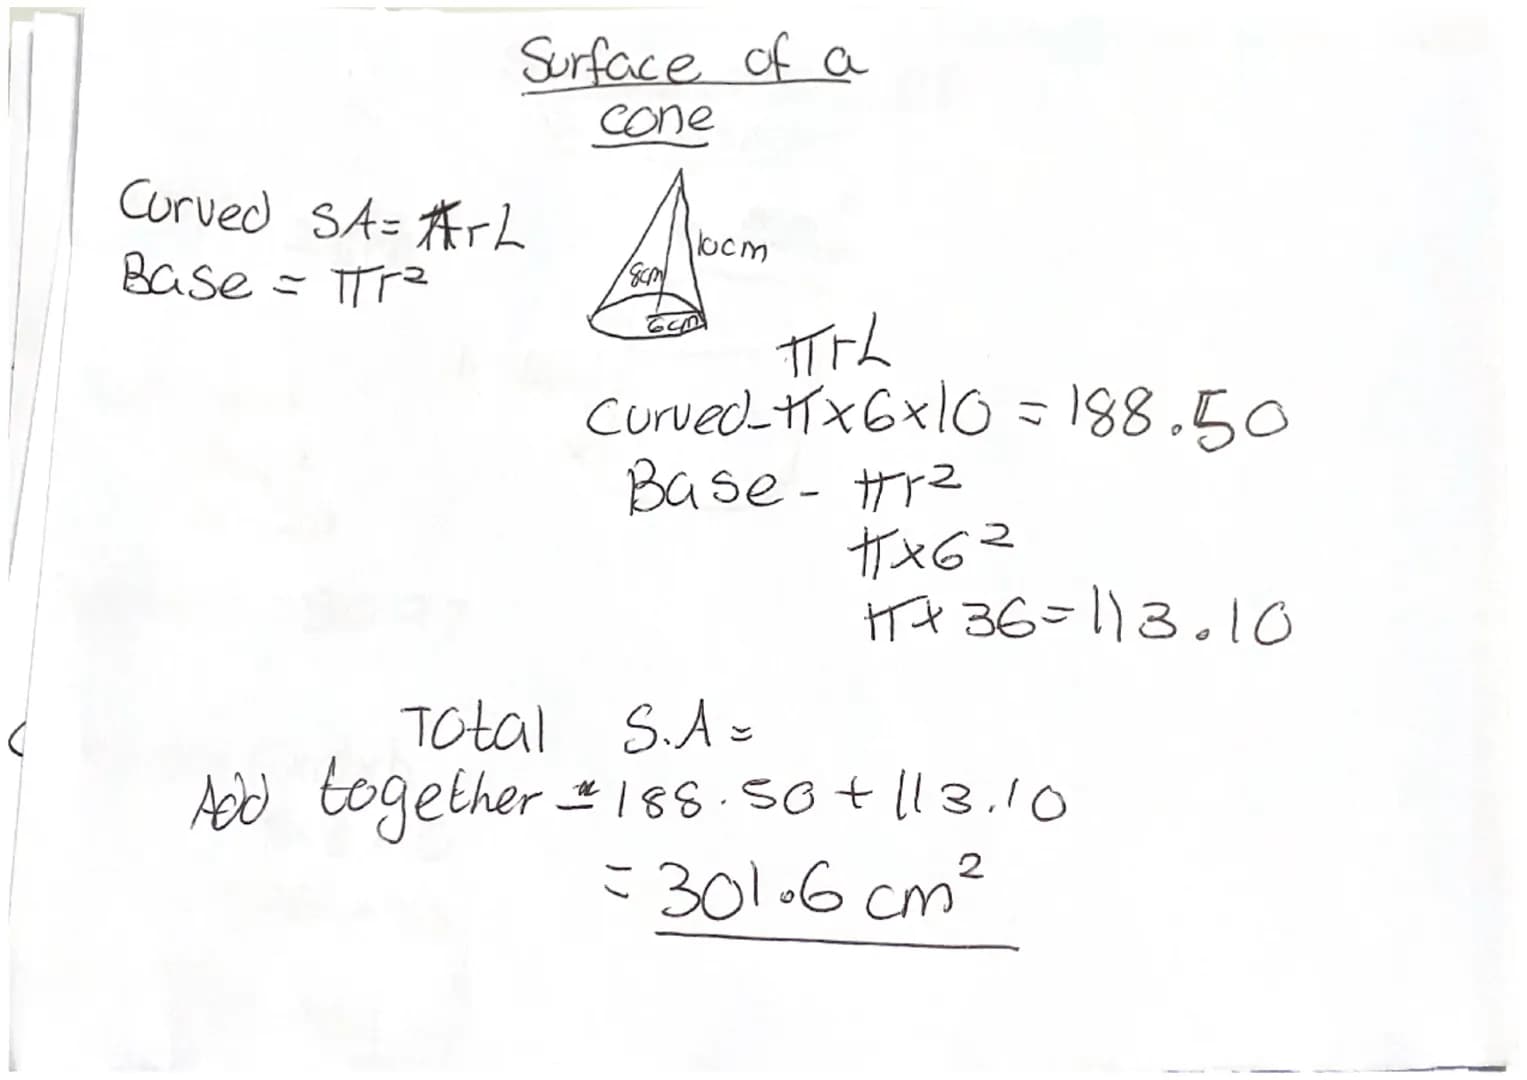 Surface of a
cone
Curved SA= πrL
Base = πr²
10cm
8cm
6cm
πrL
Curved-π×6×10 = 188.50
Base - πr²
π×6²
π×36=113.10
Total S.A =
Add together = 188.50 + 113.10
= 301.6 cm²